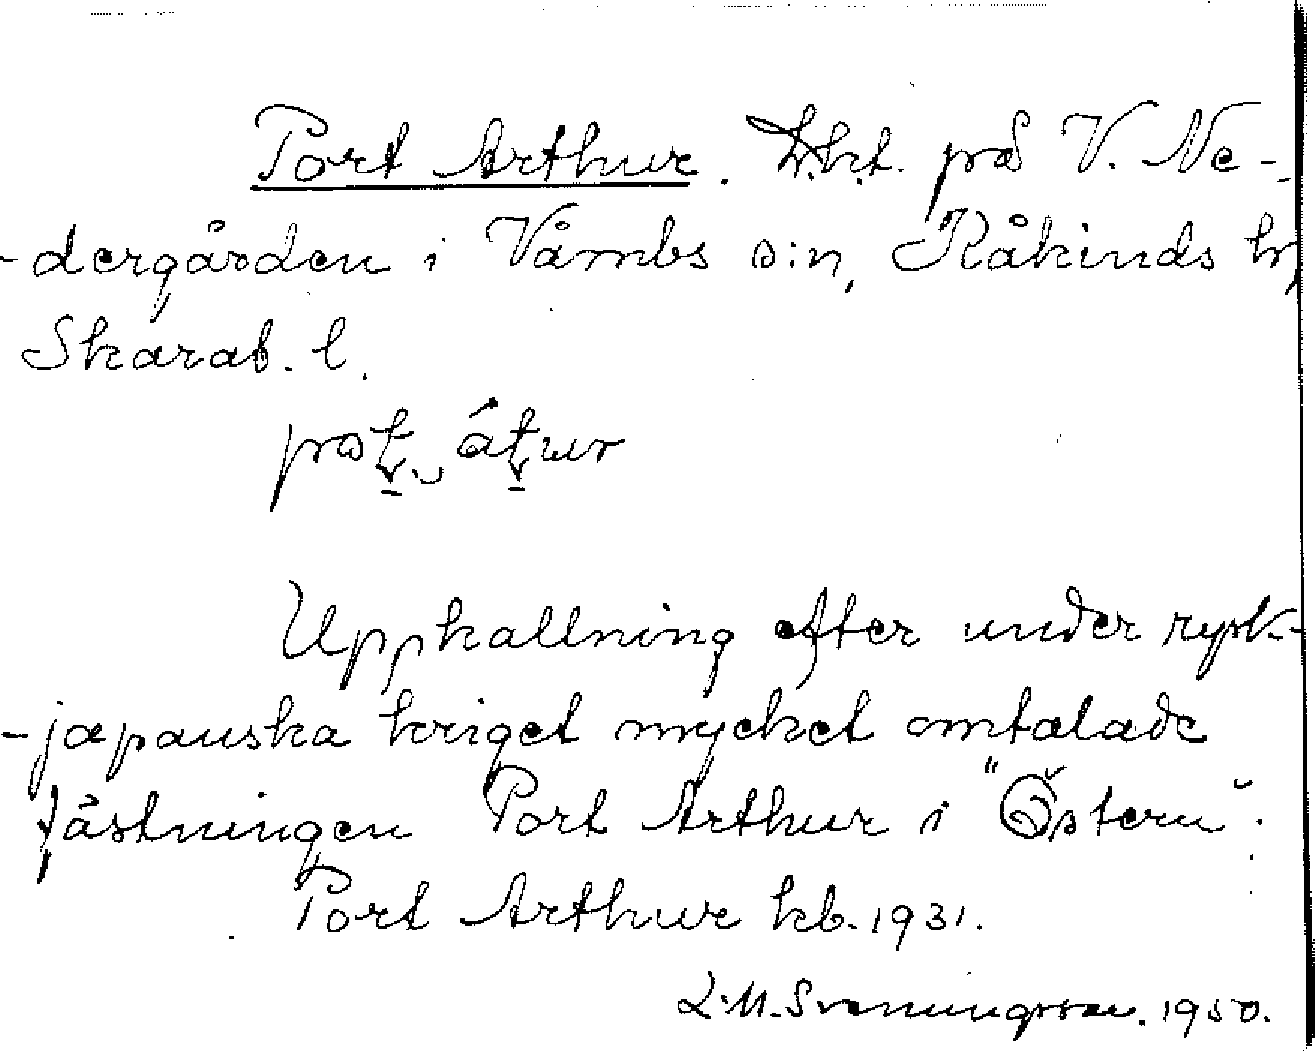 Port Arthur. Lht. på V. Ne-
-dergården i Våmbs s:n, Kåkinds hd
Skarab. l.
pat. átur
Uppkallning efter under rysk-
-japanska kriget mycket omtalade
fästningen Port Arthur i "Östern".
Port Arthur kb. 1931.
L.M. Svenungsson. 1950.